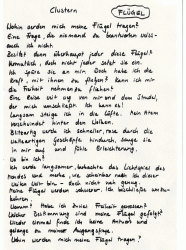 Clustern
FLÜGEL
Wohin werden mich meine Flügel tragen?
Eine Frage, die niemand zu beantworten weiss-
auch ich nicht.
Besitzt denn überhaupt jeder diese Flügel?
Normalerweise, doch nicht jeder setzt sie ein.
Ich spüre sie an mir. Doch habe ich die
Kraft, mit ihnen zu fliegen? Kann ich mir
die Freiheit nehmen zu fliehen?
Eine Reise liegt vor mir und dem Strudel,
der mich verschlingt. Ich kann es!
Langsam steige ich in die Lüfte. Mein Atem
verschwindet hinter den Wolken.
Blitzartig werde ich schneller, rase durch die
in mir auf und fühle Erleichterung.
Wo bin ich?
Ich werde langsamer, beobachte das Lichtspiel des
Mondes und merke, wie scheinbar nah ich dieser
Welt bin - doch nicht nah genug.
Meine Flügel werden schwerer. Ich beschliesse umzu-
kehren.
Warum? Habe ich diese Freiheit genossen?
Welcher Bestimmung sind meine Flügel gefolgt?
Wieder einmal finde ich keine Antwort und
gelange zu meiner Ausgangsfrage:
Wohin werden mich meine Flügel tragen?